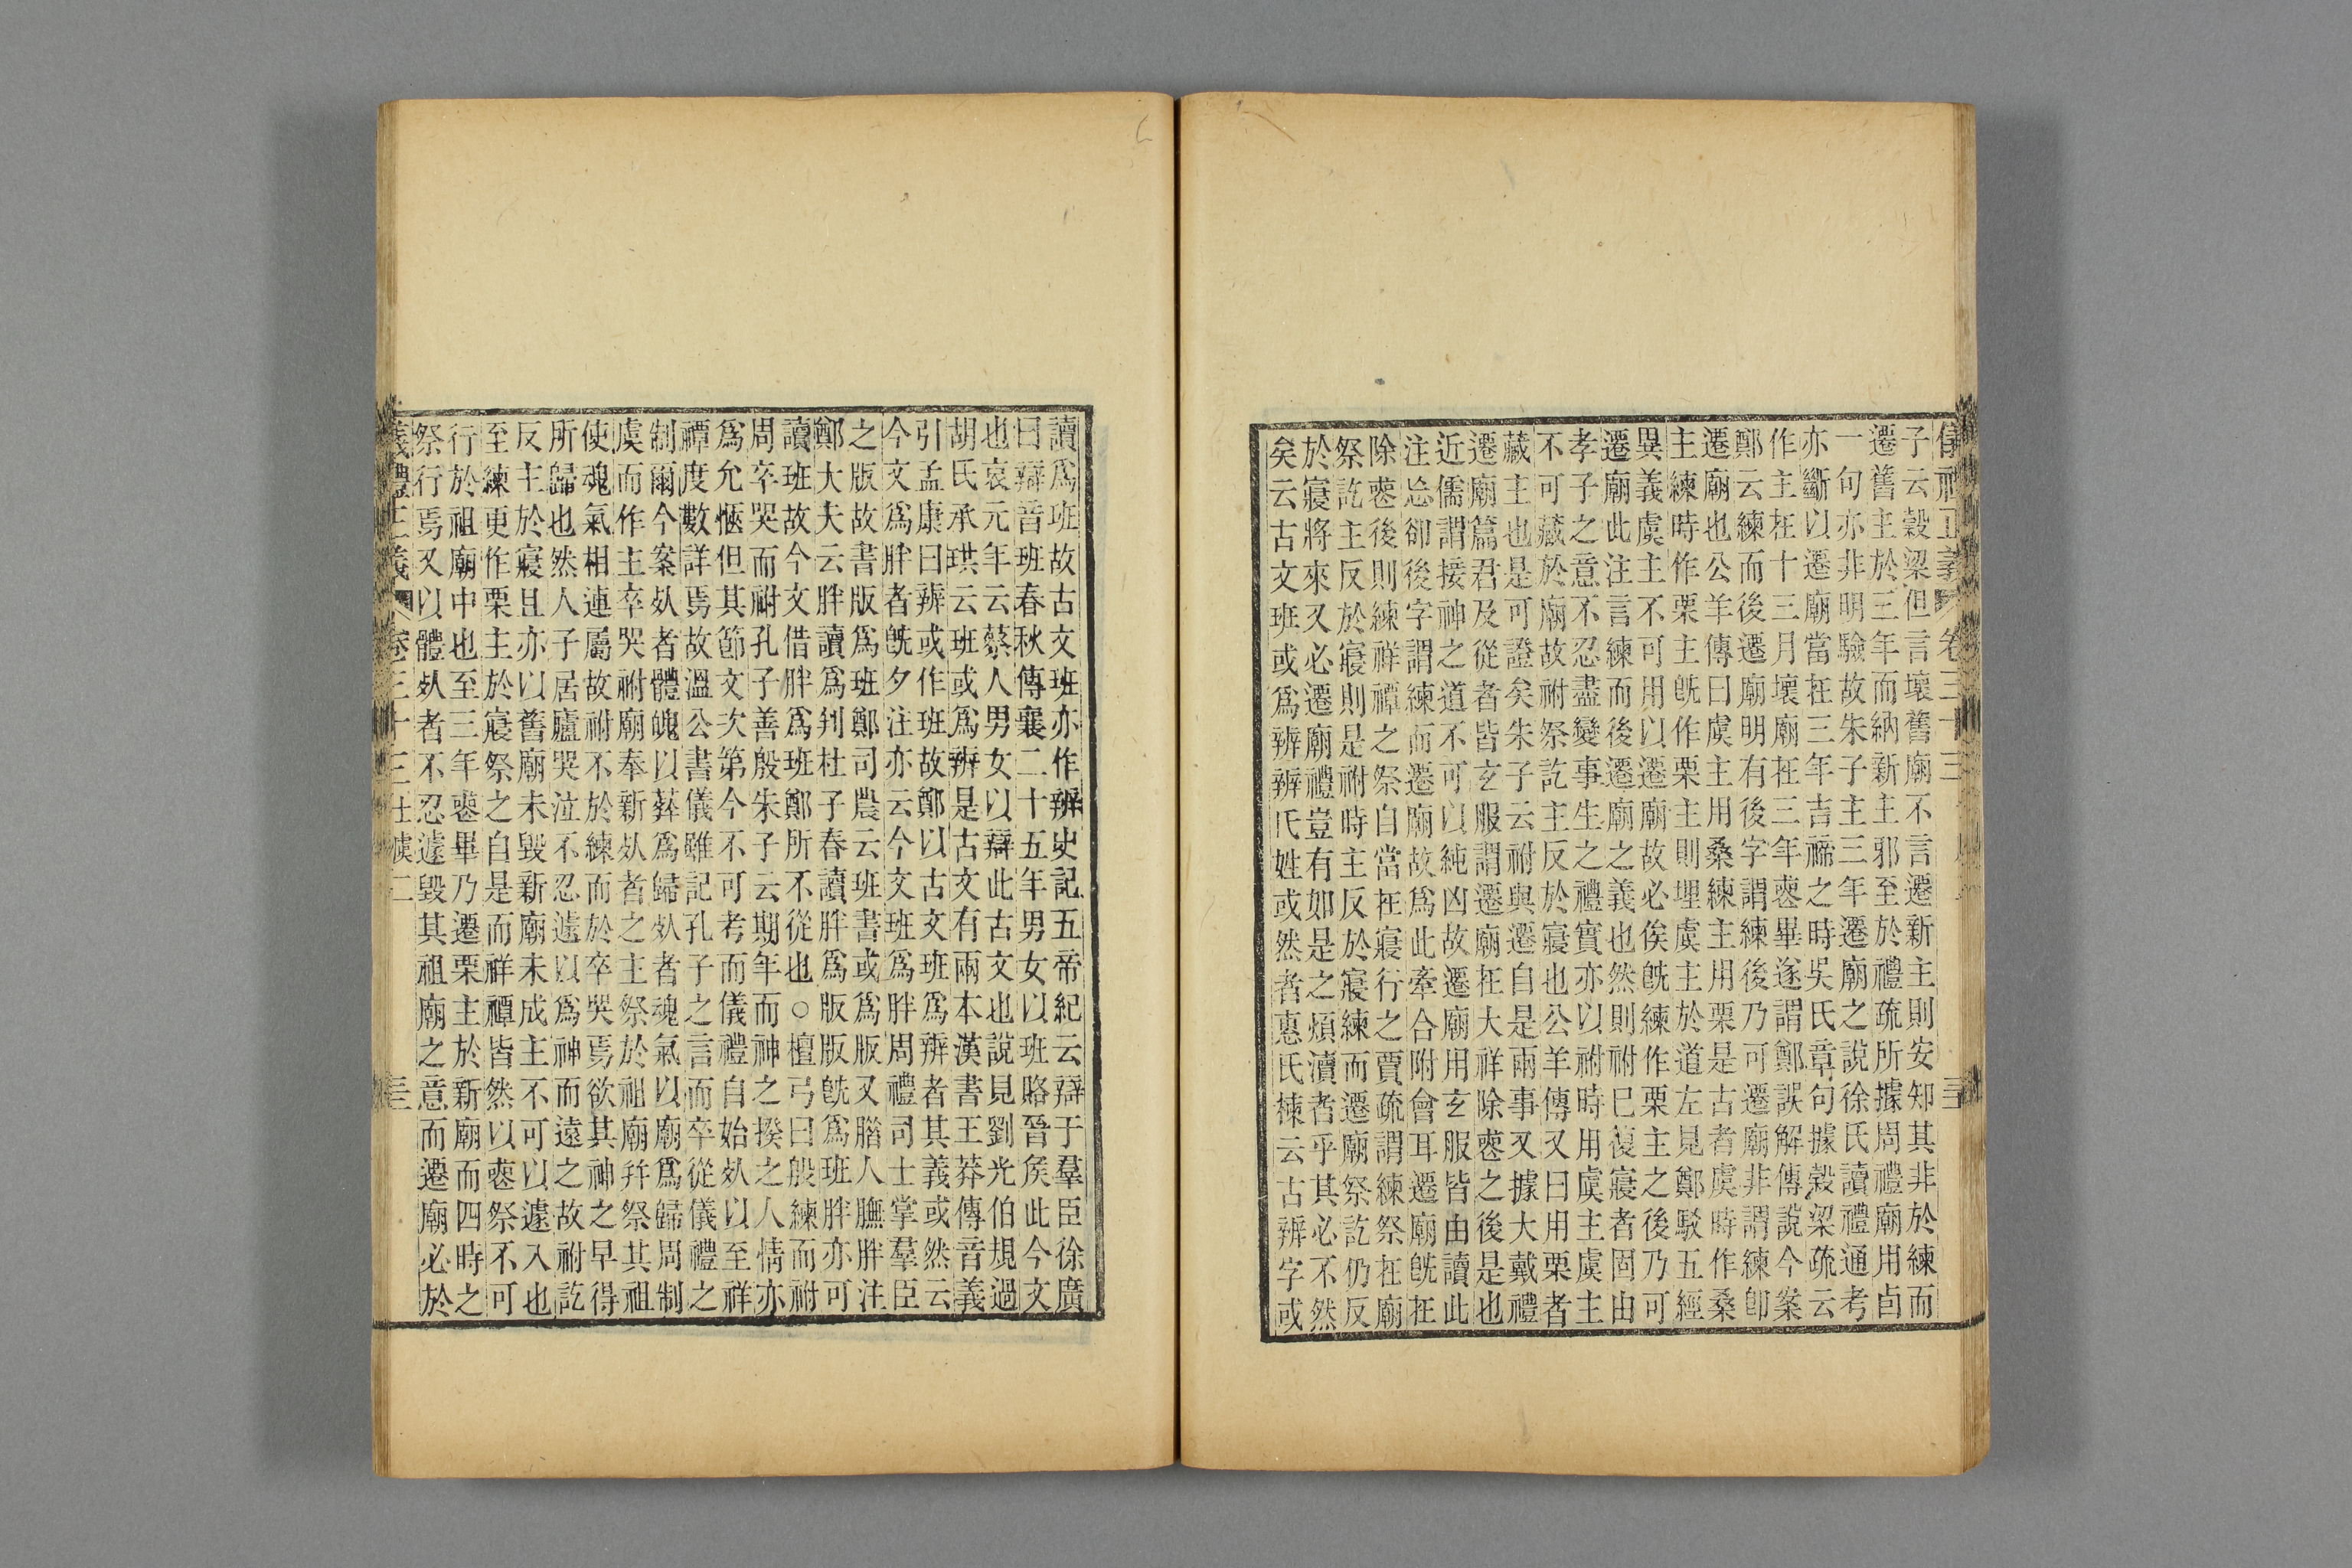 子云穀梁但言壞舊廟不言遷新主則安知其非於練而
遷舊主於三年而納新主邪至於禮疏所據周禮廟用卣
一句亦非明驗故朱子主三年遷廟之說徐氏讀禮通考
亦斷以遷廟當在三年吉禘之時吳氏章句據穀梁疏云
作主在十三月壞廟在三年喪畢遂謂鄭誤解傳說今案
鄭云練而後遷廟明有後字謂練後乃可遷廟非謂練卽
遷廟也公羊傳曰虞主用桑練主用栗是古者虞時作桑
主練時作栗主旣作栗主則埋虞主於道左見鄭駁五經
異義虞主不可用以遷廟故必俟旣練作栗主之後乃可
遷廟此注言練而後遷廟之義也然則祔已復寢者固由
孝子之意不忍盡變事生之禮實亦以祔時用虞主虞主
不可藏於廟故祔祭訖主反於寢也公羊傳又曰用栗者
藏主也是可證矣朱子云祔與遷自是兩事又據大戴禮
遷廟篇君及從者皆玄服謂遷廟在大祥除喪之後是也
近儒謂接神之道不可以純凶故遷廟用玄服皆由讀此
注忘卻後字謂練而遷廟故爲此牽合附會耳遷廟旣在
除喪後則練祥禫之祭自當在寢行之賈疏謂練祭在廟
祭訖主反於寢則是祔時主反於寢練而遷廟祭訖仍反
於寢將來又必遷廟禮豈有如是之煩瀆者乎其必不然
矣云古文班或爲辨辨氏姓或然者惠氏棟云古辨字或
讀爲班故古文班亦作辨史記五帝紀云辯于羣臣徐廣
曰辯音班春秋傳襄二十五年男女以班賂晉矦此今文
也哀元年云蔡人男女以辯此古文也說見劉光伯規過
胡氏承珙云班或爲辨是古文有兩本漢書王莽傳音義
引孟康曰辨或作班故鄭以古文班爲辨者其義或然云
今文爲胖者旣夕注亦云今文班爲胖周禮司士掌羣臣
之版故書版爲班鄭司農云班書或爲版又腊人膴胖注
鄭大夫云胖讀爲判杜子春讀胖爲版版旣爲班胖亦可
讀班故今文借胖爲班鄭所不從也○檀弓曰殷練而祔
周卒哭而祔孔子善殷朱子云期年而神之揆之人情亦
爲允愜但其節文次第今不可考而儀禮自始㱙以至祥
禫度數詳焉故溫公書儀雖記孔子之言而卒從儀禮之
制爾今案㱙者體魄以葬爲歸㱙者魂氣以廟爲歸周制
虞而作主卒哭祔廟奉新㱙者之主祭於祖廟幷祭其祖
使魂氣相連屬故祔不於練而於卒哭焉欲其神之早得
所歸也然人子居廬哭泣不忍遽以爲神而遠之故祔訖
反主於寢且亦以舊廟未毀新廟未成主不可以遽入也
至練更作栗主於寢祭之自是而祥禫皆然以喪祭不可
行於祖廟中也至三年喪畢乃遷栗主於新廟而四時之
祭行焉又以體㱙者不忍遽毀其祖廟之意而遷廟必於